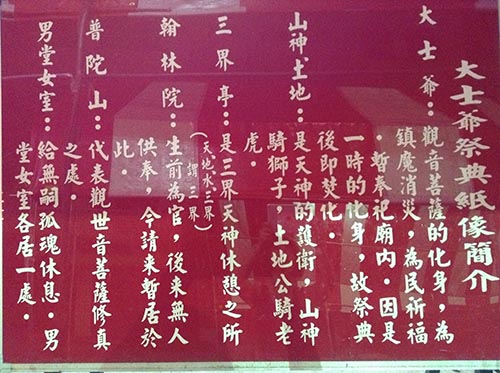 大士爺祭典紙像簡介
大士爺：觀音菩薩的化身，為
鎮魔消災，為民祈福
．暫奉祀廟內．因是
一時的化身，故祭典
後即焚化．
山神、土地：是天神的護衛，山神
騎獅子，土地公騎老
虎．
三界亭：是三界天神休憩之所
（天、地、水、三界
謂三界）
翰林院：生前為官，後來無人
供奉，今請來暫居於
此．
普陀山：代表觀世音菩薩修真
之處．
男堂女室：給無嗣孤魂休息．男
堂女室各居一處．